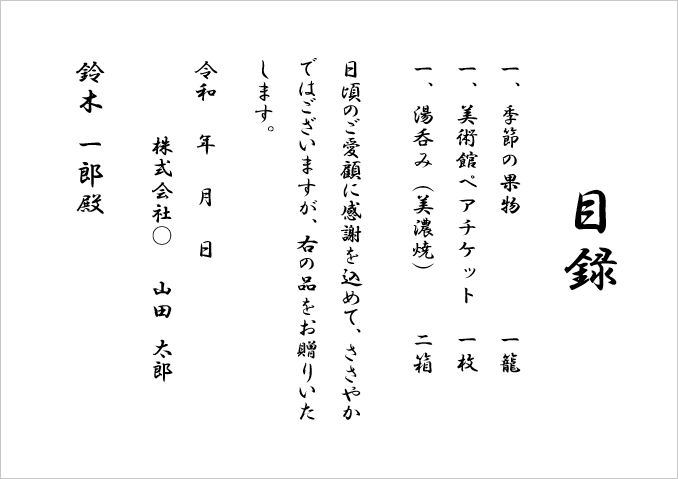 目録
一、季節の果物 一籠
一、美術館ペアチケット 一枚
一、湯呑み（美濃焼） 二箱
日頃のご愛顧に感謝を込めて、ささやか
ではございますが、右の品をお贈りいた
します。
令和 年 月 日
株式会社〇 山田 太郎
鈴木 一郎殿